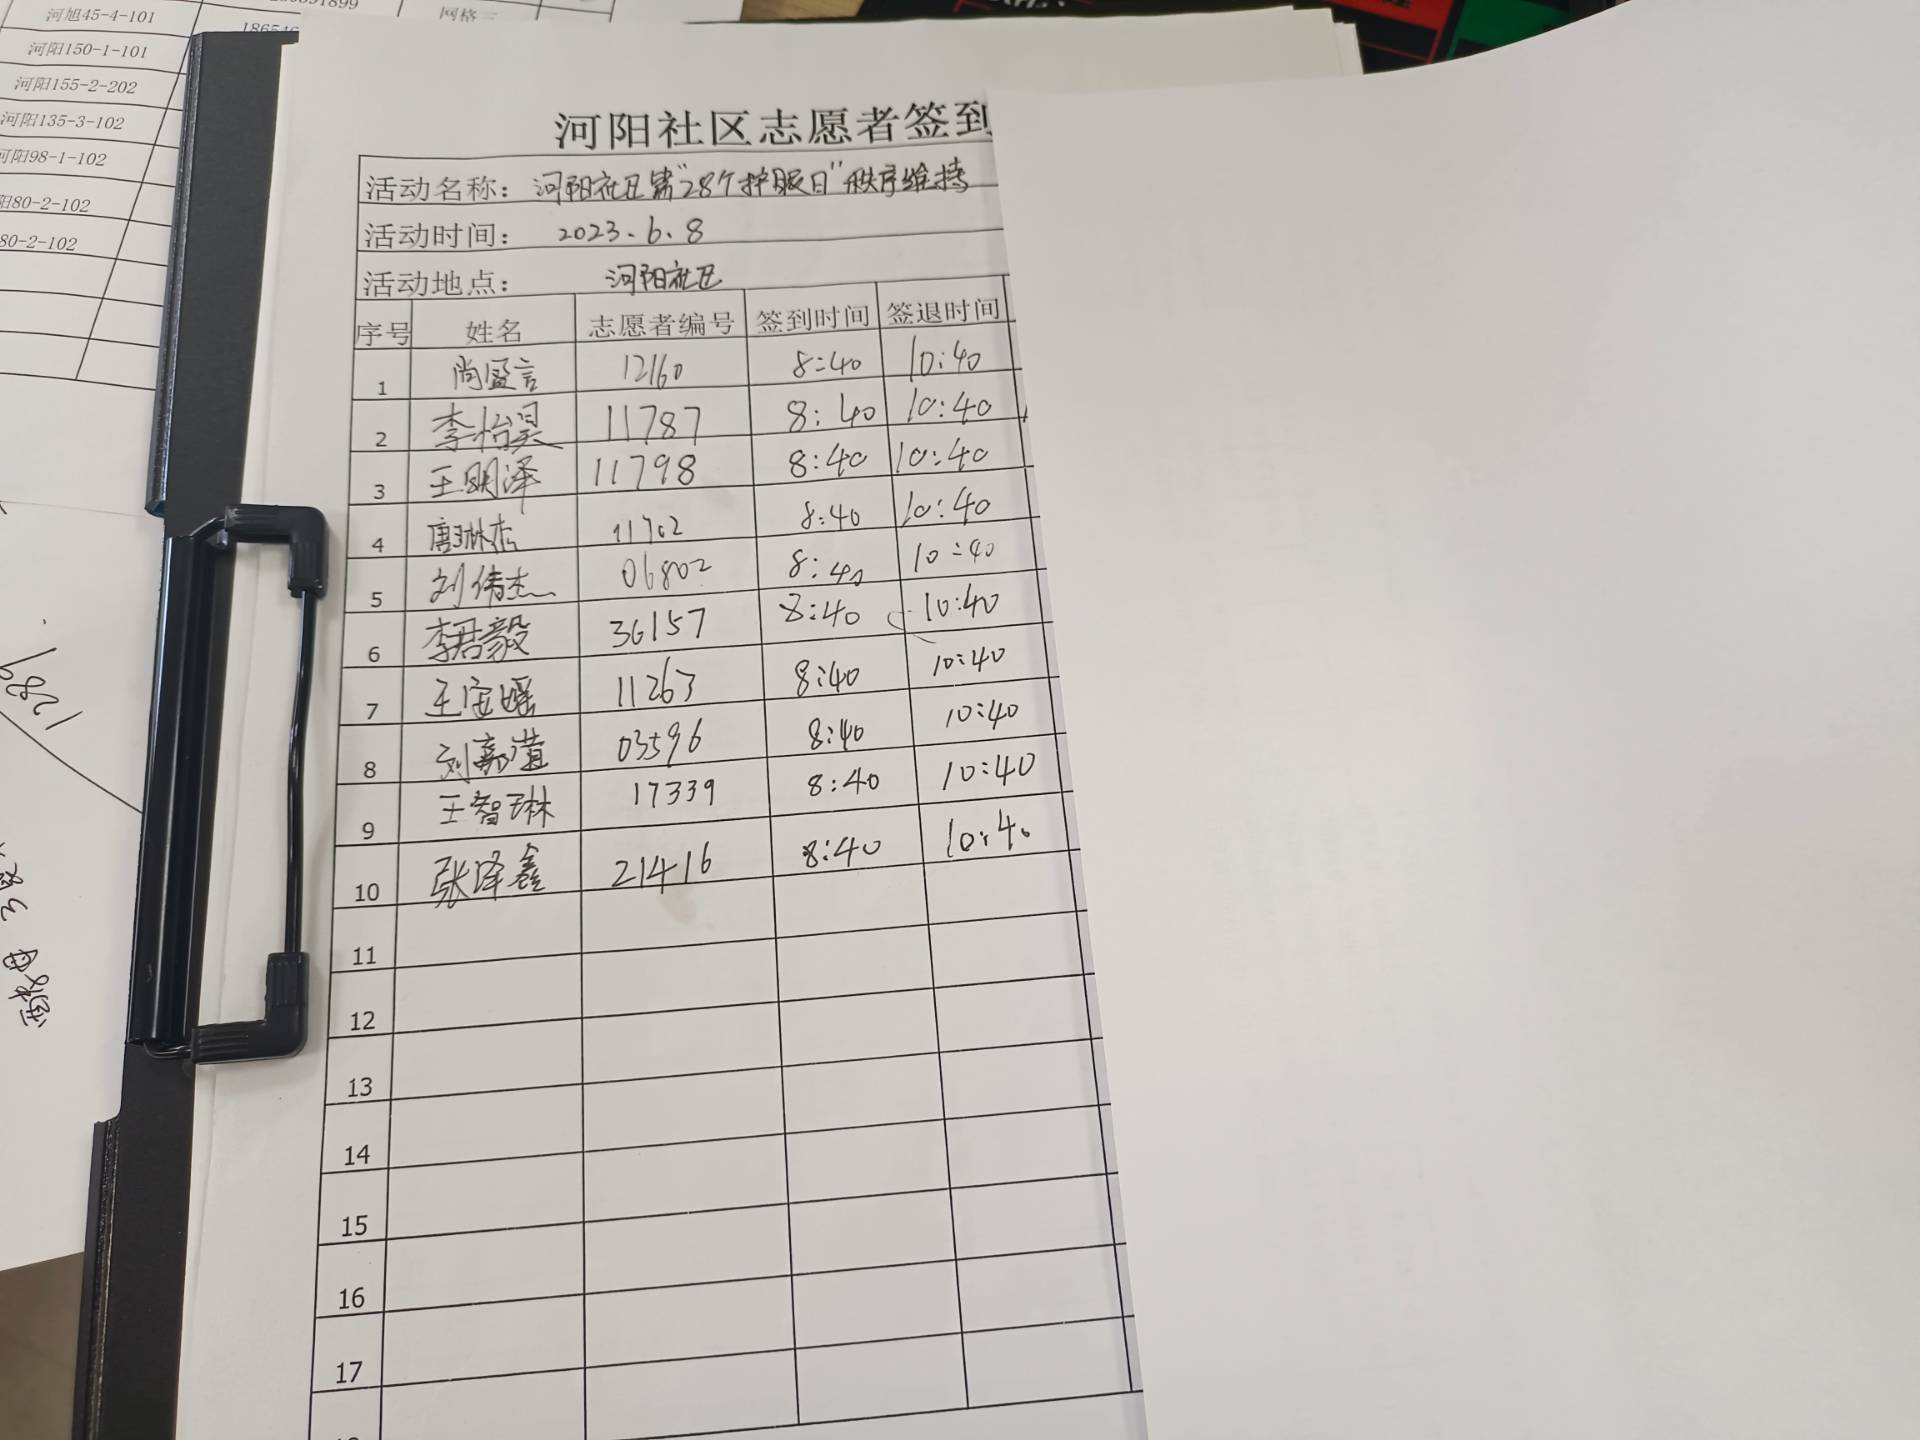 河旭45-4-101
河阳150-1-101
河阳155-2-202
河阳135-3-102
河阳98-1-102
阳80-2-102
80-2-102
网格三
河阳社区志愿者签到
活动名称： 河阳社区第"28个护眼日"秩序维持
活动时间： 2023.6.8
活动地点： 河阳社区
序号 姓名 志愿者编号 签到时间 签退时间
1 尚盛言 12160 8:40 10:40
2 李怡昊 11787 8:40 10:40
3 王明泽 11798 8:40 10:40
4 唐琳杰 11702 8:40 10:40
5 刘伟杰 06802 8:40 10:40
6 李君毅 36157 8:40 10:40
7 王宝瑶 11263 8:40 10:40
8 刘嘉滢 03596 8:40 10:40
9 王智琳 17339 8:40 10:40
10 张泽鑫 21416 8:40 10:40
11
12
13
14
15
16
17